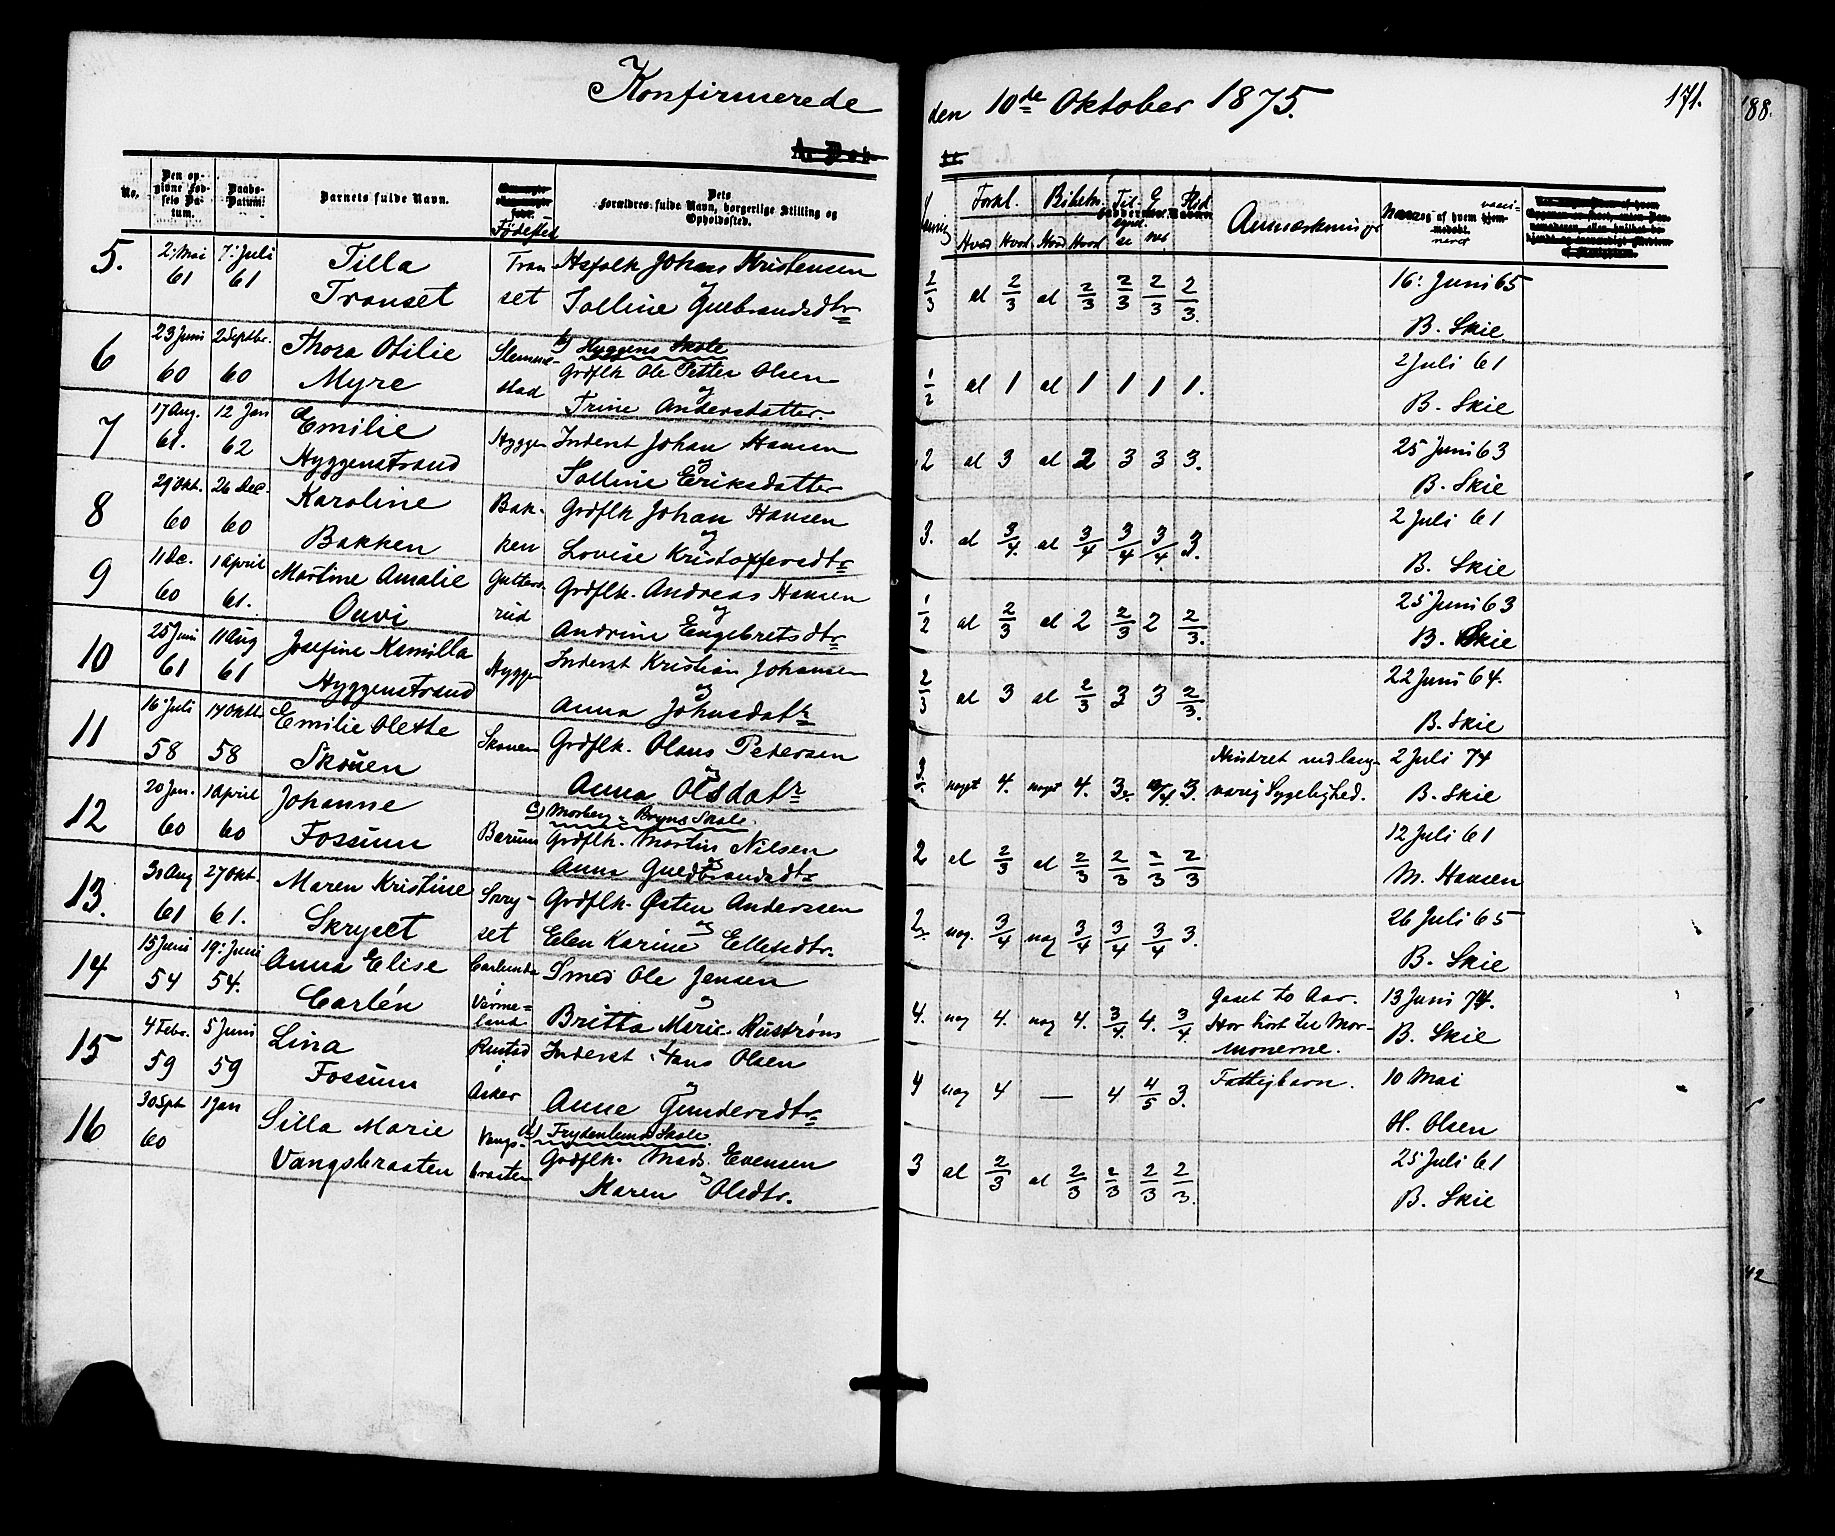 Konfirmerede den 10de Oktober 1875. 171.
188.
No. Den opgivne Fødsels Datum. Daabs-Datum. Barnets fulde Navn. Fødested Dets Forældres fulde Navn, borgerlige Stilling og Opholdssted.
Forkl. Bibelh. Anmærkninger
Hvad Hvord Hvad Hvord
5. 2 Mai 61 7: Juli 61 Tilla Transet Transet Hsfolk Johans Kristensen og Tolline Gulbrandsdtr 2/3 al 2/3 al 2/3 2/3 2/3 2/3. 16: Juni 65 B. Skie.
b) Hyggens Skole
6 23 Juni 60 2 Septbr. 60 Thora Otilie Myre Slemmestad Grdflk Ole Petter Olsen og Trine Andersdatter. 1/2 al 1 al 1 1 1 1. 2 Juli 61 B. Skie
7 17 Aug. 61. 12 Jan 62 Emilie Hyggenstrand Hyggen Inderst Johan Hansen og Tolline Eriksdatter 2 al 3 al 2 3 3 3. 25 Juni 63 B. Skie
8 29 Okt. 60 26 Dec. 60 Karoline Bakken Bakken Grdflk Johan Hansen og Lovise Kristoffersdtr 3. al 3/4. al 3/4 3/4 3/4. 3. 2 Juli 61 B. Skie
9 11 Dc. 60 1 April 61. Martine Amalie Ouvi Grdflk. Andreas Hansen og Andrine Engebretsdtr 1/2 al 2/3 al 2 2/3 2 2/3. 25 Juni 63 B. Skie
10 25 Juni 61 11 Aug 61 Josefine Kamilla Hyggenstrand Hyggen Inderst Kristian Johansen og Anna Johnsdatr 2/3 al 3 al 2/3 3 3 2/3. 22 Juni 64. B. Skie
11 16 Juli 58 17 Oktb. 58 Emilie Olette Skouen Skouen Grdflk. Olaus Petersen og Anna Olsdatr noget 4. noget 4. 3. Hindret ved langvarig Sygelighed. 2 Juli 74 B. Skie
c) Morberg & Bryns Skole.
12 20 Jan. 60 1 April 60 Johanne Fossum Bærum Grdflk. Martin Nilsen og Anna Guldbrandsdtr 2 al 2/3 al 2/3 2/3 2/3 2/3 12 Juli 61 M. Hansen
13. 30 Aug 61 27 Okt. 61. Maren Kristine Skryset Grdflk. Østen Anderssen og Elen Karine Ellefsdtr. 2. nog. 3/4 nog 3/4 3/4 3/4 3. 26 Juli 65 B. Skie
14 15 Juni 54 19: Juni 54. Anna Elise Carlén Carlunda i Värmeland Smed Ole Jensen og Britta Marie Rüström 4. nog 4. nog 4. 3/4. 4. 3/4. Gaaet to Aar. Har hørt til Mormonerne. 13 Juni 74. B. Skie
15 4 Febr. 59 5 Juni 59 Lina Fossum Rustad i Asker Inderst Hans Olsen og Anne Gundersdtr 4 nog 4 — 4 4/5 3. Fattigbarn. 10 Mai H. Olsen
d) Frydenlunds Skole.
16 30 Spt 60 1 Jan Silla Marie Vangsbraaten Vangsbraaten Grdflk. Mads. Evensen og Maren Olsdtr. 3 al 2/3 al 2/3 2/3 2/3 2/3. 25 Juli 61 B. Skie